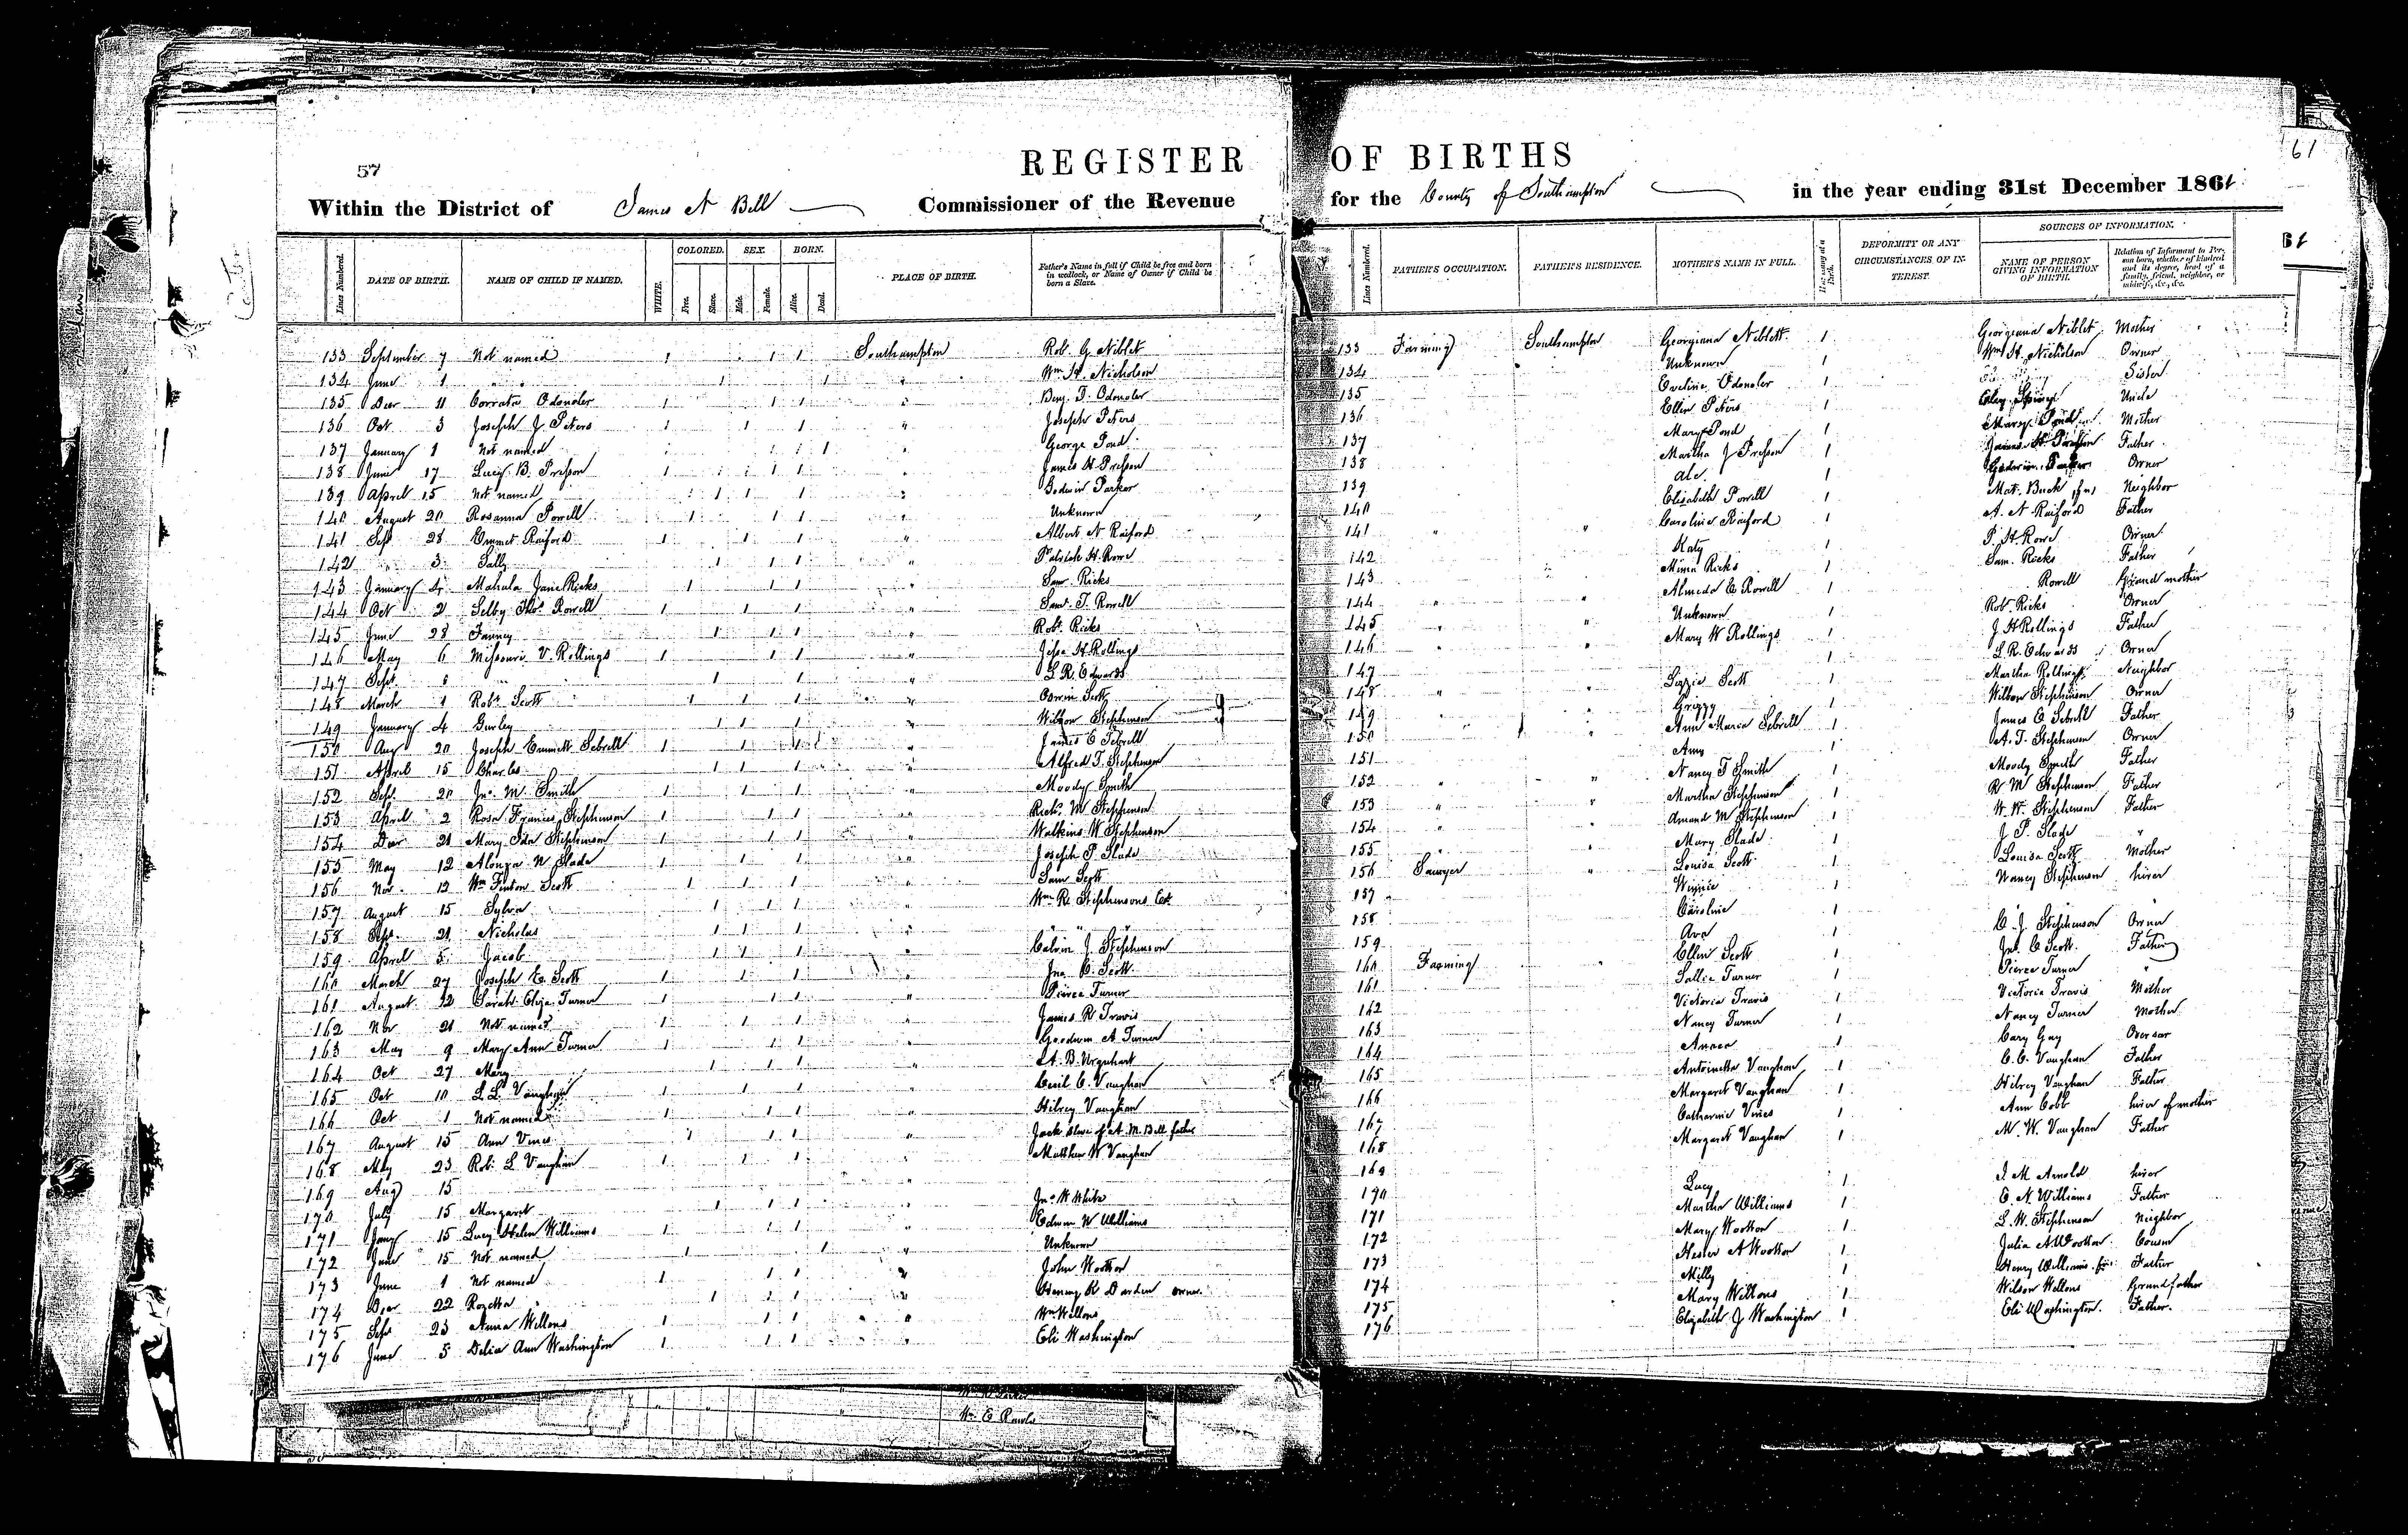 57
REGISTER OF BIRTHS
61
Within the District of James N Bell Commissioner of the Revenue for the County of Southampton in the year ending 31st December 1861
Lines Numbered. DATE OF BIRTH. NAME OF CHILD IF NAMED. WHITE. COLORED. Free. Slave. SEX. Male. Female. BORN. Alive. Dead. PLACE OF BIRTH. Father's Name in full if Child be free and born in wedlock, or Name of Owner if Child be born a Slave.
Lines Numbered. FATHER'S OCCUPATION. FATHER'S RESIDENCE. MOTHER'S NAME IN FULL. DEFORMITY OR ANY CIRCUMSTANCES OF INTEREST. SOURCES OF INFORMATION. NAME OF PERSON GIVING INFORMATION OF BIRTH. Relation of Informant to Person born, whether of kindred and its degree, head of a family, friend, neighbor, or midwife, &c., &c.
133 September 7 Not named 1 1 1 Southampton Rob. G. Niblet 133 Farming Southampton Georgiana Niblett 1 Georgeana Niblet Mother
134 June 1 " " 1 1 " Wm H. Nicholson 134 Unknown 1 Wm H. Nicholson Owner
135 Decr 11 Odonoler 1 1 1 " Benj. T. Odonoler 135 Eveline Odonoler 1 Sister
136 Oct 3 Joseph J. Peters 1 1 1 " Joseph Peters 136 Ellen Peters 1 Uncle
137 January 1 Not named 1 1 1 " George Pond 137 Mary Pond 1 Mary Pond Mother
138 June 17 Lucy B. Presson 1 1 1 " James H Presson 138 Martha J Presson 1 Father
139 April 15 Not named 1 1 1 " Godwin Parker 139 1 Owner
140 August 20 Rosanna Powell 1 1 1 " Unknown 140 Elizabeth Powell 1 Mat. Buck Neighbor
141 Sept 28 Emmet Raiford 1 1 1 " Albert N Raiford 141 " " Caroline Raiford 1 A. N Raiford Father
142 " 3 Sally 1 1 1 " H. Rowe 142 Katy 1 P. H. Rowe Owner
143 January 4 Mahala Jane Ricks 1 1 1 " Sam. Ricks 143 Ricks 1 Sam. Ricks Father
144 Oct 2 Selby Thos. Rowell 1 1 1 " Saml. T. Rowell 144 " " Almeda E Rowell 1 Rowell Grand mother
145 June 28 Fanney 1 1 1 " Robt. Ricks 145 " " Unknown 1 Robt. Ricks Owner
146 May 6 Missouri V. Rollings 1 1 1 " Jesse H Rollings 146 " " Mary W Rollings 1 J H Rollings Father
147 Sept. " 1 1 " L. R. Edwards 147 1 L. R. Edwards Owner
148 March 1 Robt. Scott 1 1 1 " Scott 148 " " Scott 1 Martha Rollings Neighbor
149 January 4 Gurley 1 1 1 " Wilson Stephenson 149 Grizzy 1 Wilson Stephenson Owner
150 Aug 20 Joseph Emmett Sebrell 1 1 1 " James E Sebrell 150 " Ann Maria Sebrell 1 James E Sebrell Father
151 April 15 Charles 1 1 1 " Alfred T. Stephenson 151 Amy 1 A. T. Stephenson Owner
152 Sept. 20 Jno. M. Smith 1 1 1 " Moody Smith 152 " " Nancy T Smith 1 Moody Smith Father
153 April 2 Rosa Frances Stephenson 1 1 1 " Richd. M Stephenson 153 " " Martha Stephenson 1 R M Stephenson Father
154 Decr 21 Mary Ida Stephenson 1 1 1 " Watkins W Stephenson 154 " " Amand M Stephenson 1 W. W. Stephenson Father
155 May 12 Alonza N Slade 1 1 1 " Joseph P. Slade 155 " Mary Slade 1 J P. Slade "
156 Nov. 12 Wm Fenton Scott 1 1 1 " Sam Scott 156 Sawyer " Louisa Scott 1 Louisa Scott Mother
157 August 15 Sylva 1 1 1 " Wm R. Stephensons Est 157 Winnie 1 Nancy Stephenson hirer
158 Sept. 21 Nicholas 1 1 1 " " " " 158 Caroline 1 " "
159 April 5 Jacob 1 1 1 " Calvin J Stephenson 159 Ava 1 C. J. Stephenson Owner
160 March 27 Joseph E. Scott 1 1 1 " Jno. C. Scott 160 Farming " Ellen Scott 1 Jno. C Scott. Father
161 August 12 Sarah Eliza Turner 1 1 1 " Pierce Turner 161 Sallie Turner 1 Pierce Turner "
162 Nov 21 Not named 1 1 1 " James R Travis 162 Victoria Travis 1 Victoria Travis Mother
163 May 9 Mary Ann Turner 1 1 1 " Goodwin A Turner 163 Nancy Turner 1 Nancy Turner Mother
164 Oct 27 Mary 1 1 1 " A. B. Urquhart 164 1 Cary Gay Overseer
165 Oct 10 L. L. Vaughan 1 1 1 " Cecil C. Vaughan 165 Antoinetta Vaughan 1 C. C. Vaughan Father
166 Oct 1 Not named 1 1 1 " Hilrey Vaughan 166 Margaret Vaughan 1 Hilrey Vaughan Father
167 August 15 Ann Vines 1 1 1 " Jack slave of A. M. Bell father 167 Catharine Vines 1 Ann Cobb hirer of mother
168 May 23 Robt. L Vaughan 1 1 1 " Matthew W Vaughan 168 Margaret Vaughan 1 M. W. Vaughan Father
169 Aug 15 " 169
170 July 15 Margaret 1 1 1 " Jno. W White 170 Lucy 1 J. M Arnold hirer
171 Jany 15 Lucy Helen Williams 1 1 1 " Edwin N Williams 171 Martha Williams 1 E. N Williams Father
172 June 15 Not named 1 1 " Unknown 172 Mary Wootton 1 L. W. Stephenson Neighbor
173 June 1 Not named 1 1 1 " John Wootton 173 Hester A Wootton 1 Julia A Wootton Cousin
174 Decr 22 Rozetta 1 1 1 " Henry R Darden owner. 174 Milly 1 Henry Williams Father
175 Sept 23 Anna Willons 1 1 1 " Wm Willons 175 Mary Willons 1 Wilson Willons Grandfather
176 June 5 Delia Ann Washington 1 1 1 " Eli Washington 176 Elizabeth J Washington 1 Eli Washington. Father.